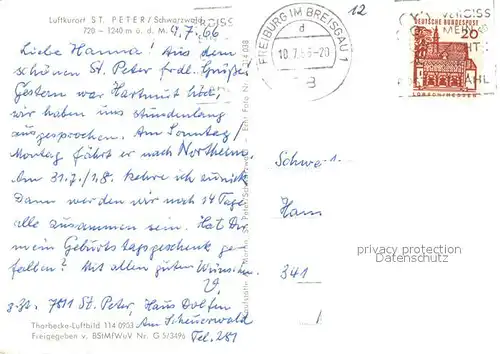 Luftkurort ST. PETER/Schwarzwald
720 – 1240 m ü. d. M.
9.7.66
Liebe Hanna! Aus dem
schönen St. Peter frdl. Grüße.
Gestern war Hartmut hier,
wir haben uns stundenlang
ausgesprochen. Am Sonntag/
Montag fährt er nach Northeim.
Am 31.7./1.8. kehre ich zurück
Dann werden wir noch 14 Tage
alle zusammen sein. Hat Dir
mein Geburtstagsgeschenk ge-
fallen? Mit allen guten Wünschen
V.
z.Zt. 7811 St. Peter, Haus Dolfen
Am Scheuerwald
Tel. 281
Thorbecke-Luftbild 114 0903
Freigegeben v. BStMfWuV Nr. G 5/3496
114 038
Echt Foto
St. Peter/Schwarzwald
FREIBURG IM BREISGAU 1
d
10.7.66-20
12
DEUTSCHE BUNDESPOST
20
LORSCH/HESSEN
341
privacy protection
Datenschutz